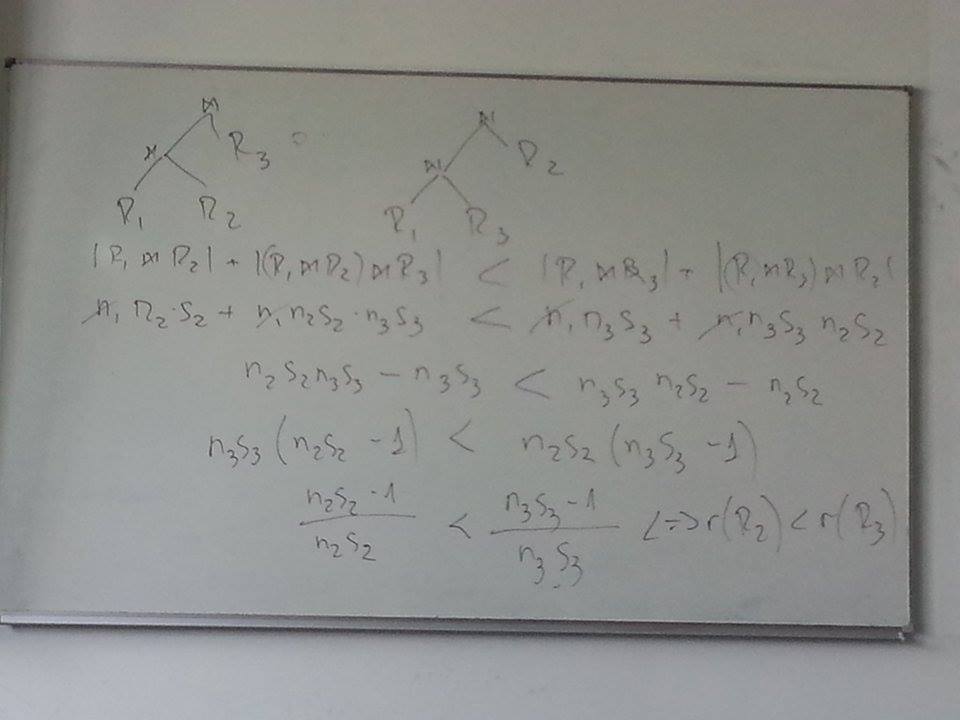 ⋈ ⋈
⋈ R₃ ⋈ R₂
R₁ R₂ R₁ R₃
|R₁ ⋈ R₂| + |(R₁ ⋈ R₂) ⋈ R₃| < |R₁ ⋈ R₃| + |(R₁ ⋈ R₃) ⋈ R₂|
n₁ n₂·s₂ + n₁n₂s₂·n₃s₃ < n₁n₃s₃ + n₁n₃s₃ n₂s₂
n₂s₂n₃s₃ − n₃s₃ < n₃s₃ n₂s₂ − n₂s₂
n₃s₃(n₂s₂ − 1) < n₂s₂(n₃s₃ − 1)
n₂s₂ − 1 / n₂s₂ < n₃s₃ − 1 / n₃s₃ <=> r(R₂) < r(R₃)